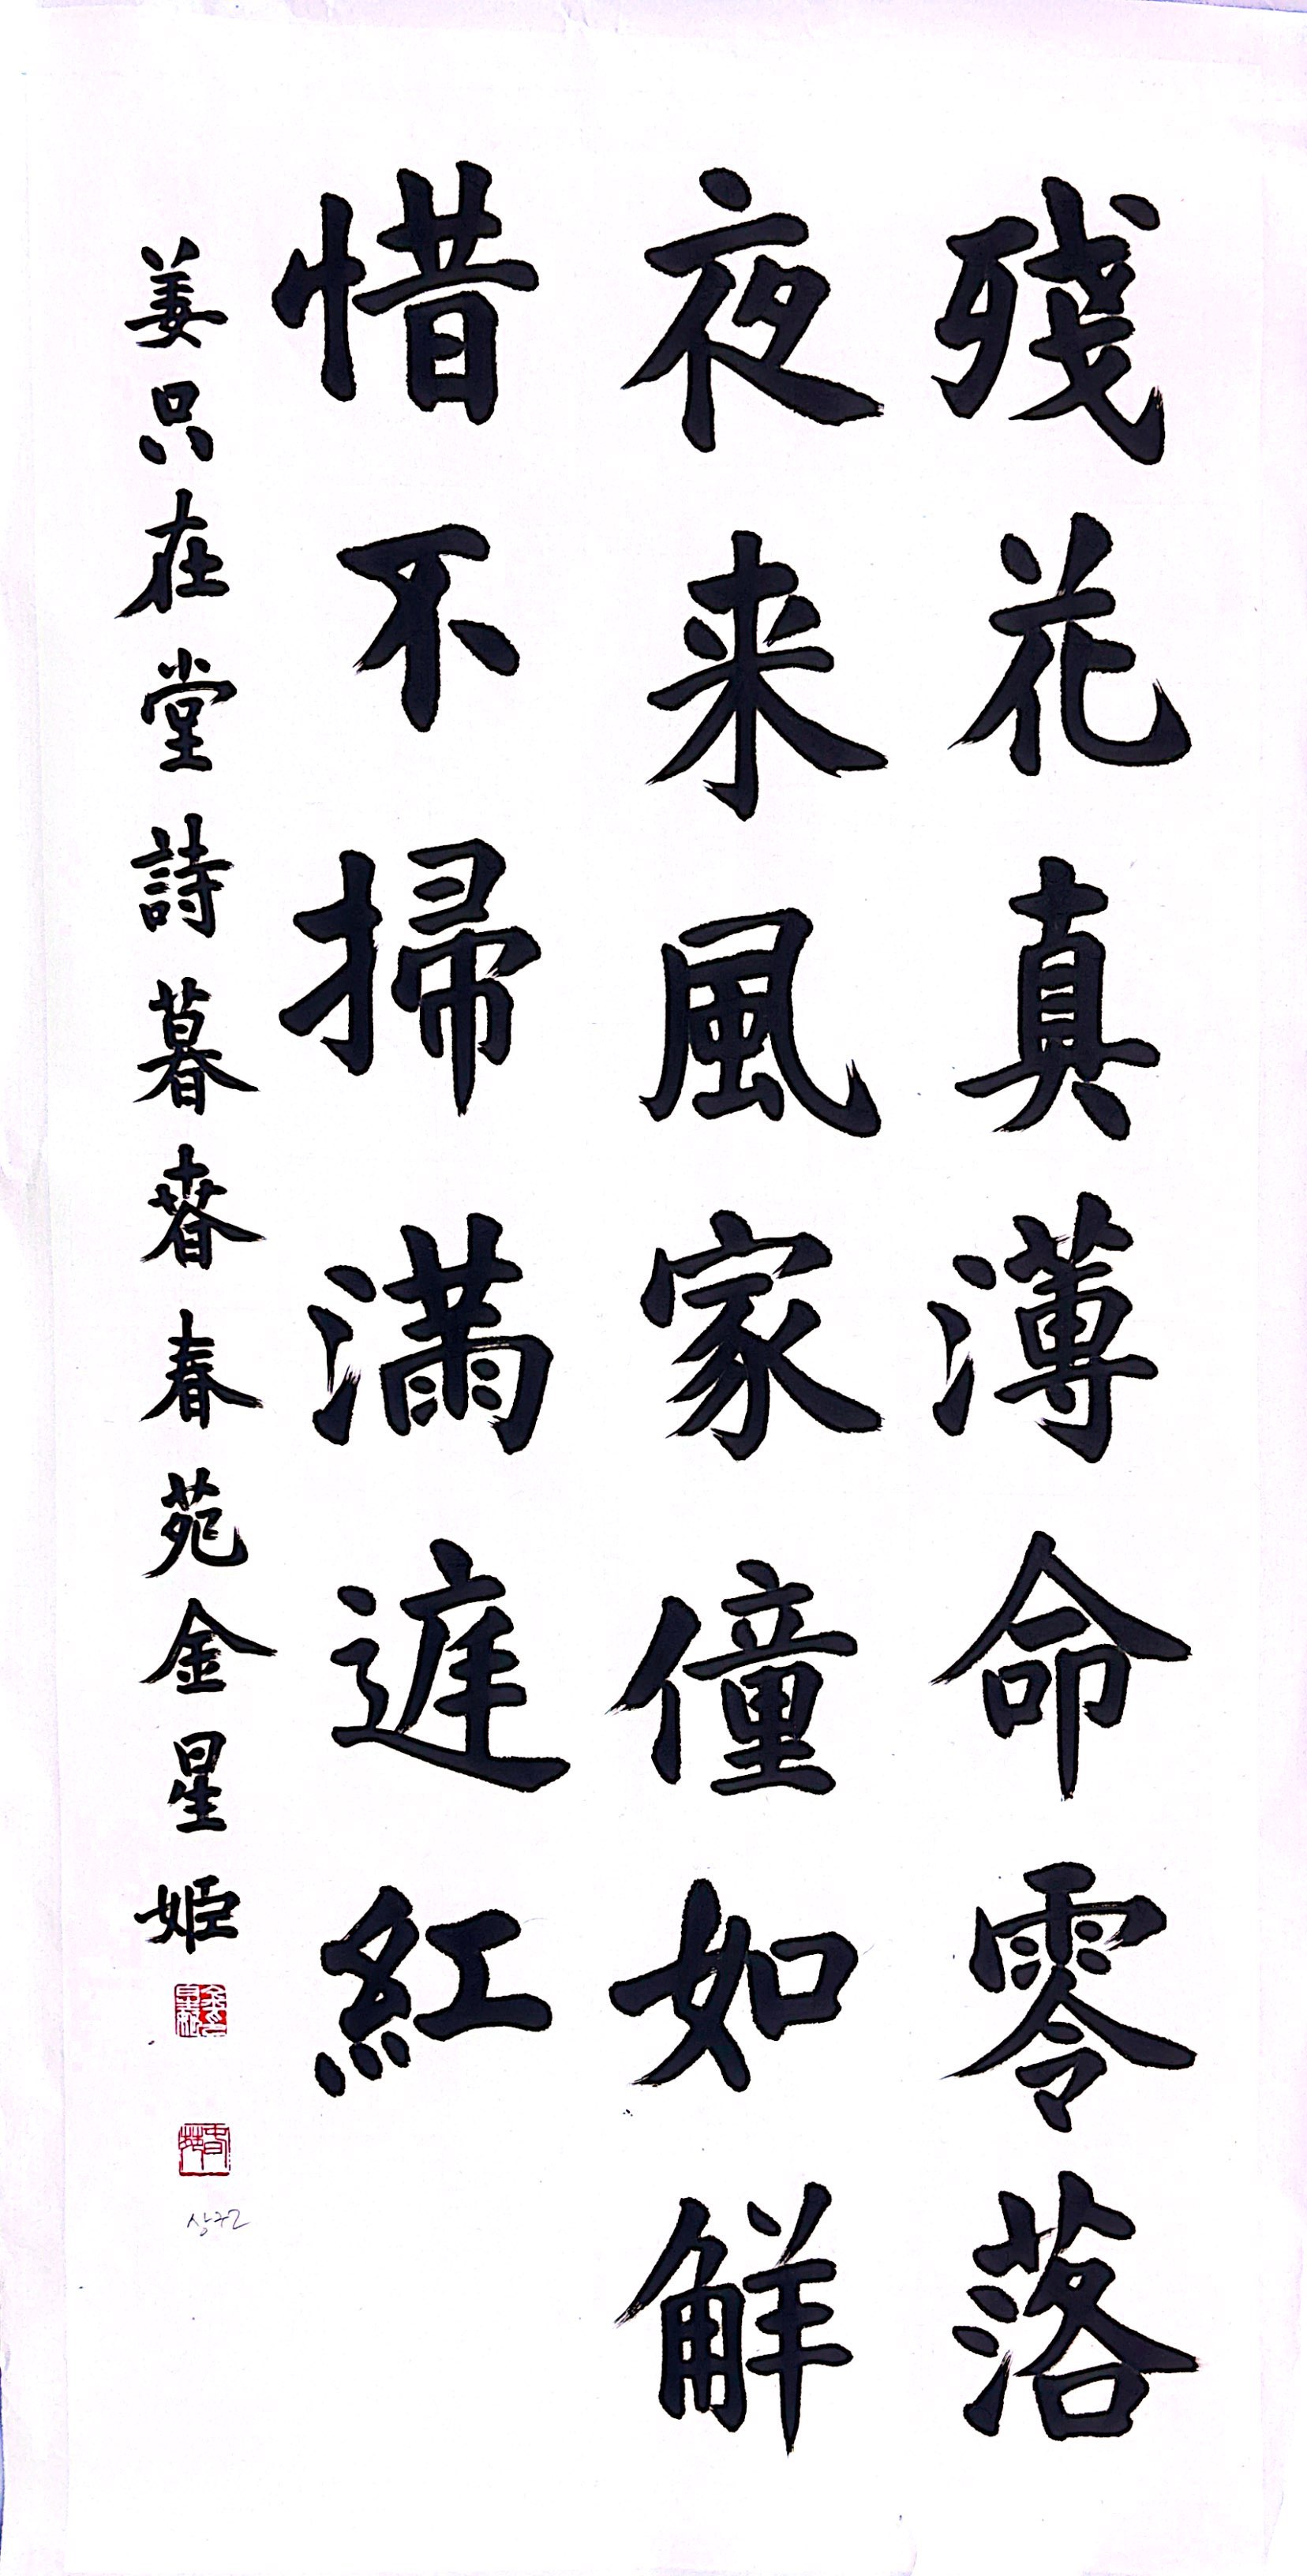 殘花真薄命零落
夜来風家僮如觧
惜不掃滿庭紅
姜只在堂詩暮春春苑金星姬